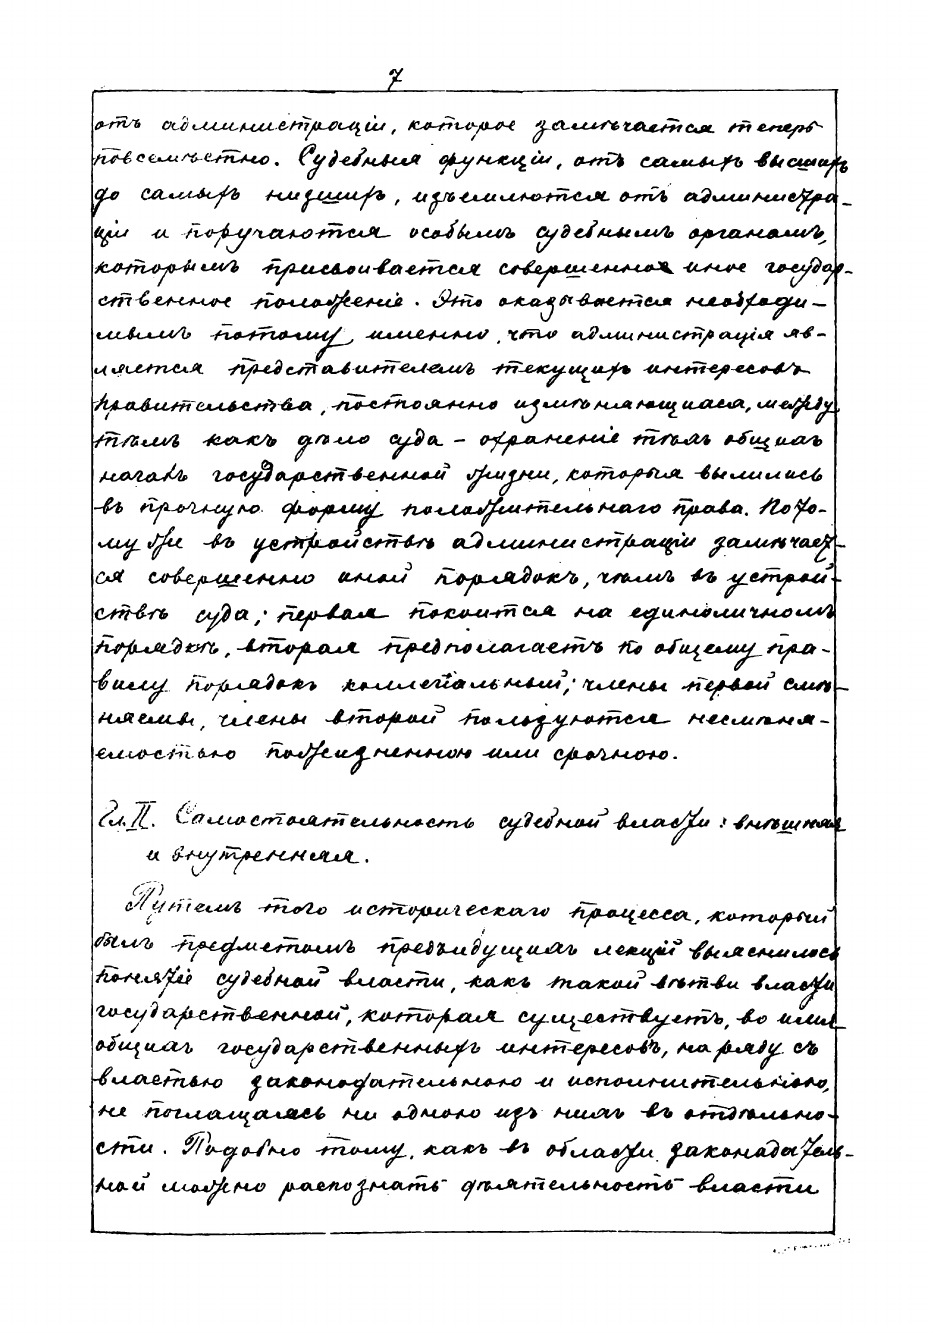 7
отъ администраціи, которое замѣчается теперь
повсемѣстно. Судебныя функціи, отъ самыхъ высшихъ
до самыхъ низшихъ, изъемлются отъ администра-
ціи и поручаются особымъ судебнымъ органамъ,
которымъ присваивается совершенное иное государ-
ственное положеніе. Это оказывается необходи-
мымъ потому именно, что администрація яв-
ляется представителемъ текущихъ интересовъ
правительства, постоянно измѣняющихся, между
тѣмъ какъ дѣло суда - охраненіе тѣхъ общихъ
началъ государственной жизни, которыя вылились
въ прочную форму положительнаго права. Пото-
му же въ устройствѣ администраціи замѣчает-
ся совершенно иной порядокъ, чѣмъ въ устрой-
ствѣ суда; первая покоится на единоличномъ
порядкѣ, вторая предполагаетъ по общему пра-
вилу порядокъ коллегіальный; члены первой смѣ-
няемы, члены второй пользуются несмѣня-
емостью пожизненною или срочною.
Гл. II. Самостоятельность судебной власти: внѣшняя
и внутренняя.
Путемъ того историческаго процесса, который
былъ предметомъ предъидущихъ лекцій выяснилось
понятіе судебной власти, какъ такой вѣтви власти
государственной, которая существуетъ, во имя
общихъ государственныхъ интересовъ, наряду съ
властью законодательною и исполнительною,
не поглощаясь ни одною изъ нихъ въ отдѣльно-
сти. Подобно тому, какъ въ области законадатель-
ной можно распознать дѣятельность власти